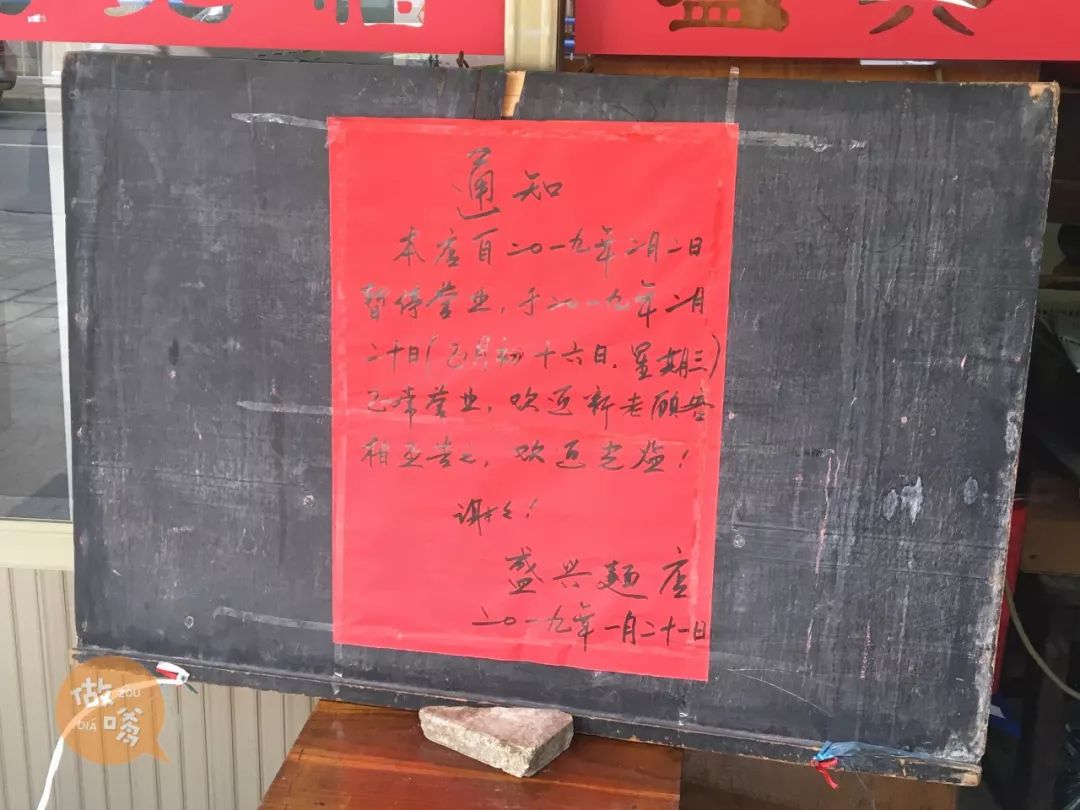 盛兴
通知
本店自二〇一九年二月二日
暂停营业，于二〇一九年二月
二十日（正月初十六日，星期三）
正常营业，欢迎新老顾客
相互告之，欢迎光临！
谢谢！
盛兴麵店
二〇一九年一月二十一日
做 ZOU
DIÁ 嗲